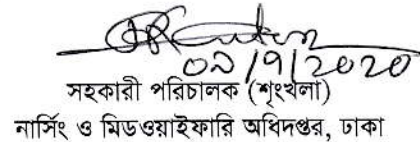 ০১/9/2020
সহকারী পরিচালক (শৃংখলা)
নার্সিং ও মিডওয়াইফারি অধিদপ্তর, ঢাকা